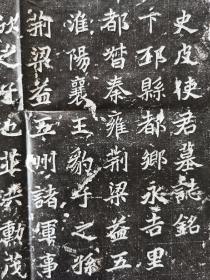 史皮使君墓誌銘
卞邳縣都鄉永吉里
都督秦雍荊梁益五
淮陽襄王豹子之孫
荊梁益五州諸軍事
欣之生也非英勳茂